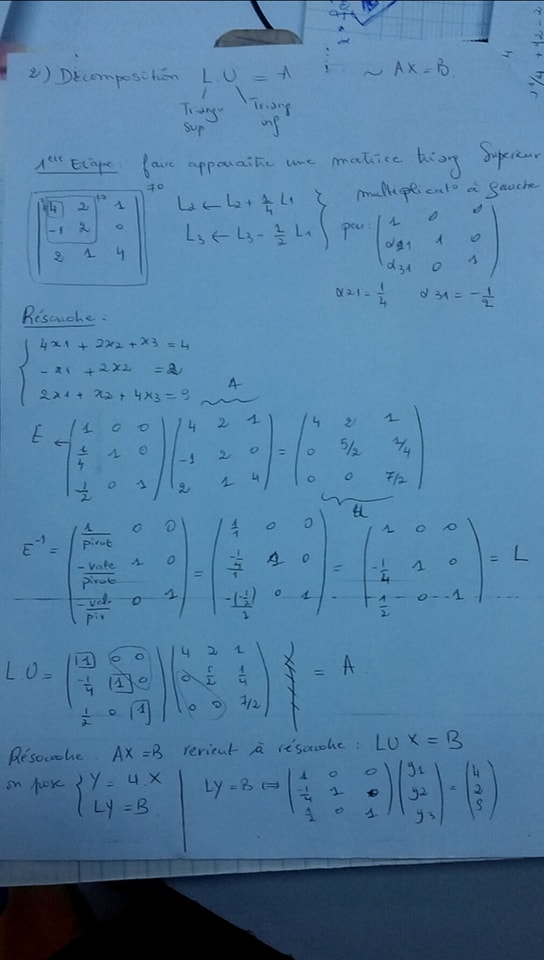 2) Décomposition L U = A ~ AX = B.
Triangu Sup
Triang inf
1ère Etape: faire apparaître une matrice triang Superieur
| 4 2 1 |
| -1 2 0 |
| 2 1 4 |
L2 ← L2 + 1/4 L1
L3 ← L3 - 1/2 L1
multiplicat° à gauche
par: ( 1 0 0 )
( α21 1 0 )
( α31 0 1 )
α21 = 1/4 α31 = -1/2
Résoudre:
4x1 + 2x2 + x3 = 4
-x1 + 2x2 = 2
2x1 + x2 + 4x3 = 9
A
E ← ( 1 0 0 ) ( 4 2 1 ) = ( 4 2 1 )
( 1/4 1 0 ) ( -1 2 0 ) ( 0 5/2 1/4 )
( -1/2 0 1 ) ( 2 1 4 ) ( 0 0 7/2 )
U
E⁻¹ = ( 1/pivot 0 0 ) = ( 1/1 0 0 ) = ( 1 0 0 ) = L
( -vale/pivot 1 0 ) ( -1/4/1 1 0 ) ( -1/4 1 0 )
( -val/piv 0 1 ) ( -(-1/2)/1 0 1 ) ( 1/2 0 1 )
LU = ( 1 0 0 ) ( 4 2 1 ) = A
( -1/4 1 0 ) ( 0 5/2 1/4 )
( 1/2 0 1 ) ( 0 0 7/2 )
Résoudre AX = B revient à résoudre: LUX = B
on pose { Y = U.X
LY = B.
LY = B ⇔ ( 1 0 0 ) ( y1 ) = ( 4 )
( -1/4 1 0 ) ( y2 ) ( 2 )
( 1/2 0 1 ) ( y3 ) ( 9 )